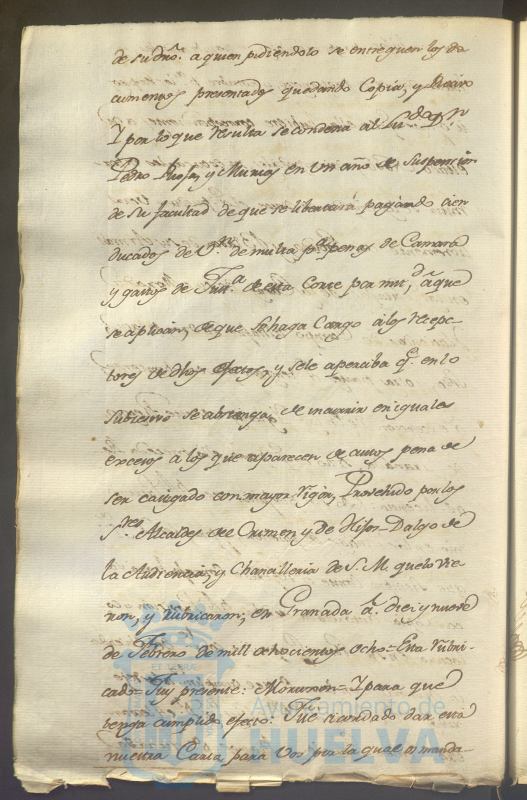 de su dño. a quien pidiendolo se entreguen los do
cumentos presentados quedando Copia, y Recivo
Y por lo que resulta se condena al Lizdo. Dn.
Pedro Rioja, y Munios en un año de suspension
de su facultad de que se libertará pagando cien
ducados de Von. de multa pa. penas de Camara
y gastos de Justa. de esta Corte por mitd. a que
se aplican, de que se haga Cargo a los recep-
tores de dhos efectos, y se le aperciba qe. en lo
subcesivo se abstenga, de incurrir en iguales
excesos a los que aparecen de autos pena de
ser castigado con mayor rigor, Provehido por los
Sres. Alcaldes del Crimen y de Hijos-Dalgo de
la Audiencia, y Chancilleria de S. M. que lo vie
ron, y rubricaron, en Granada á diez y nueve
de Febrero de mill ochocientos ocho = Esta rubri-
cado = Fui presente: = Y para que
tenga cumplido efecto: Fue acordado dar esta
nuestra Carta para Vos por la qual os manda-
ET TERRAE
Ayuntamiento de
HUELVA